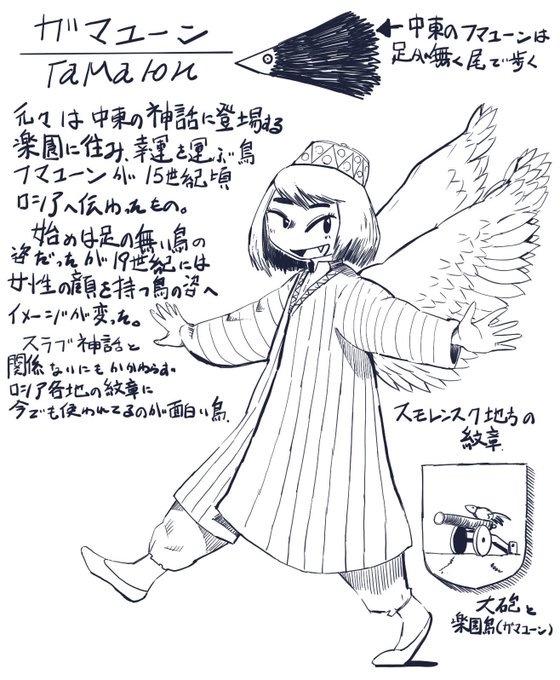 ガマユーン
ГаМаюн
←中東のフマユーンは
足が無く尾で歩く
元々は中東の神話に登場する
楽園に住み、幸運を運ぶ鳥
フマユーンが15世紀頃
ロシアへ伝わったもの。
始めは足の無い鳥の
姿だったが19世紀には
女性の顔を持つ鳥の姿へ
イメージが変った。
スラブ神話と
関係ないにもかかわらず。
ロシア各地の紋章に
今でも使われてるのが面白い鳥.
スモレンスク地方の
紋章
大砲と
楽園鳥(ガマユーン)